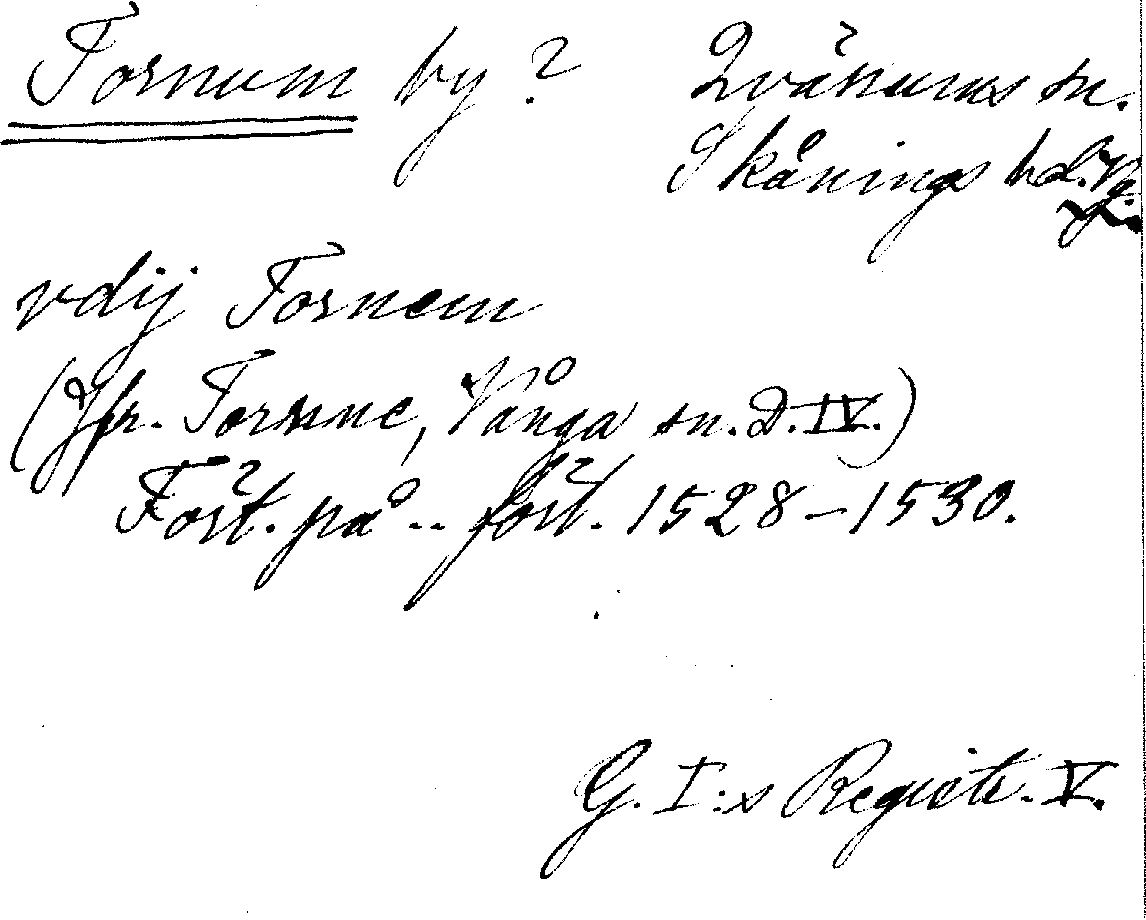 Tornum by? Qvänums sn.
Skånings hd. Vg.
vdij Tornem
(Jfr. Torsne, Vånga sn. D. IV.)
Fört. på .. fört. 1528–1530.
G. I:s Registr. V.